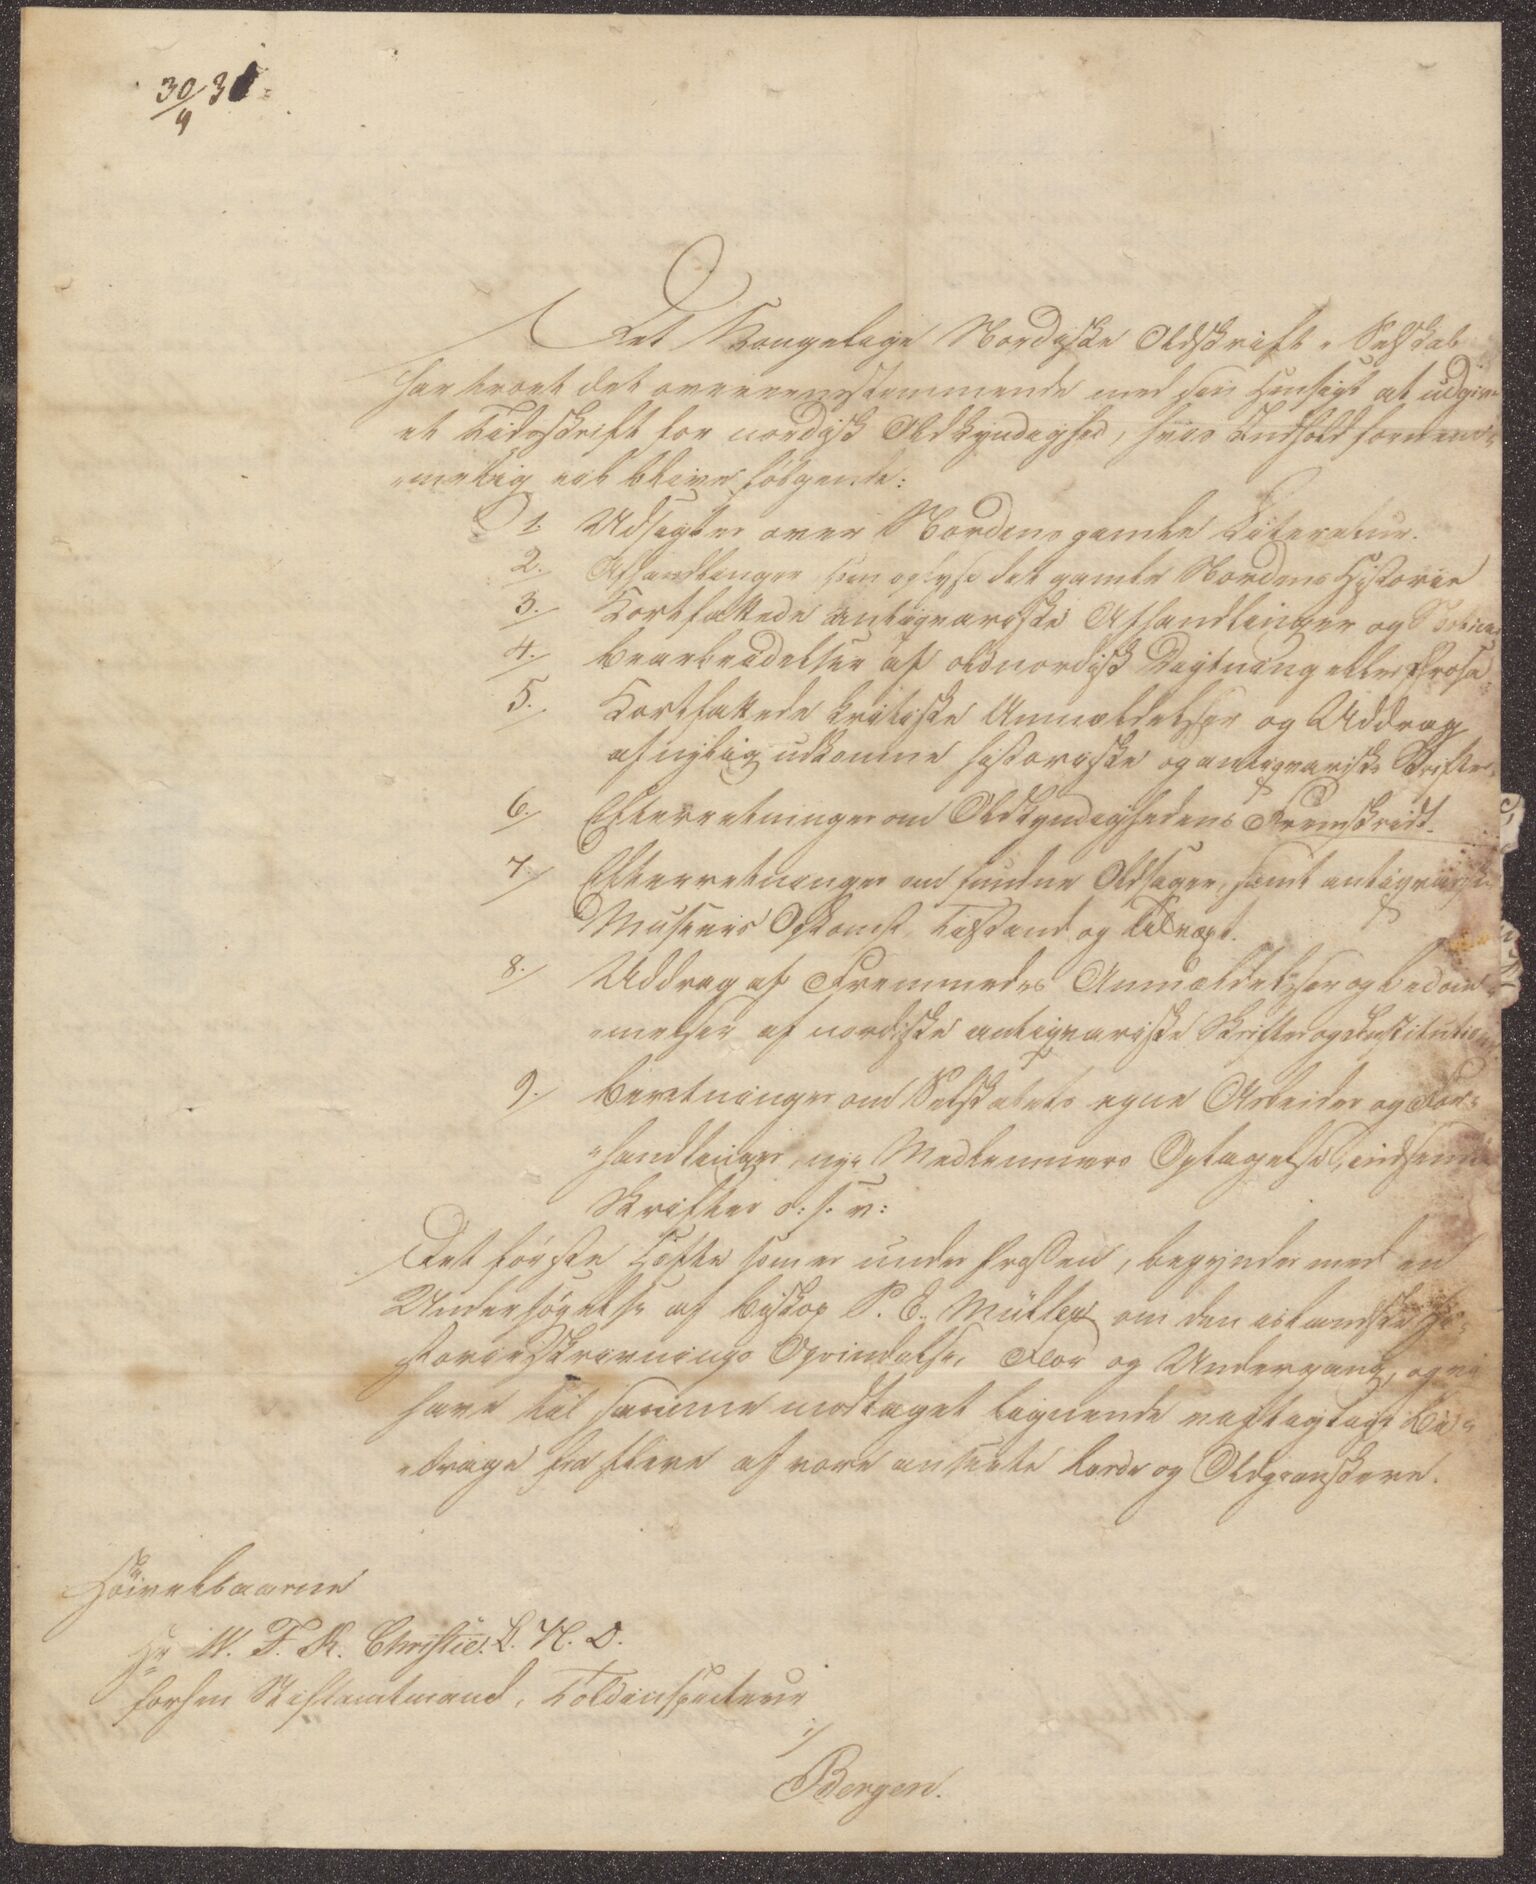 30/4 31
Det Kongelige Nordiske Oldskrift-Selskab
har troet det overeensstemmende med sin Hensigt at udgive
et Tidsskrift for nordisk Oldkyndighed, hvis Indhold fornem=
=melig vil blive følgende:
1. Udsigter over Nordens gamle Literatur.
2. Afhandlinger som oplyse det gamle Nordens Historie
3. Kortfattede antiqvariske Afhandlinger og Noticer
4. Bearbeidelser af oldnordisk Digtning eller Prosa.
5. Kortfattede kritiske Anmeldelser og Uddrag
af nylig udkomne historiske og antiqvariske Skrifter.
6. Efterretninger om Oldkyndighedens Fremskridt.
7. Efterretninger om fundne Oldsager, samt antiqvariske
Museers Opkomst, Tilstand og Tilvæxt.
8. Uddrag af Fremmedes Anmældelser og Bedøm=
=melser af nordiske antiqvariske Skrifter og Institutioner.
9. Beretninger om Selskabets egne Arbeider og For=
=handlinger, nye Medlemmers Optagelse, indsendte
Skrifter o: s: v:
Det første Hefte som er under Pressen, begynder med en
Undersøgelse af Biskop P. E. Müller om den islandske Hi=
storieskrivnings Oprindelse, Flor og Undergang, og vi
have til samme modtaget lignende vigtige Bi=
=drage fra flere af vore ansete Lærde og Oldgranskere.
Høivelbaarne
Hr W. F. K. Christie. R. N. O.
forhen Stiftamtmand, Toldinspecteur
i
Bergen.